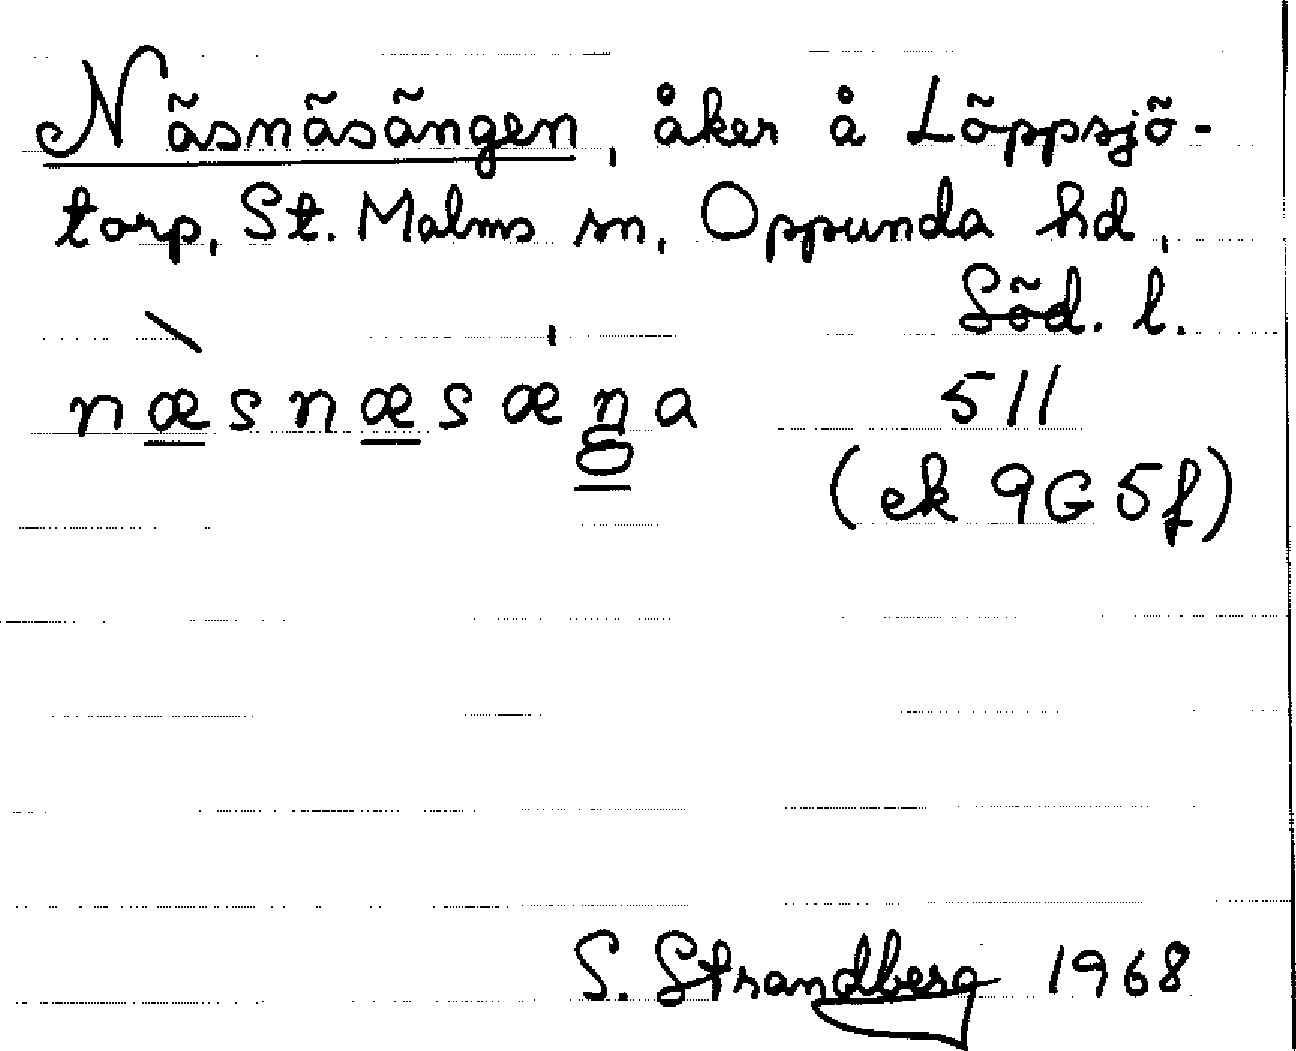 Näsnäsängen, åker å Löppsjö-
torp, St. Malms sn, Oppunda hd,
Söd. l.
næsnæsæŋa 511
(ek 9G 5f)
S. Strandberg 1968